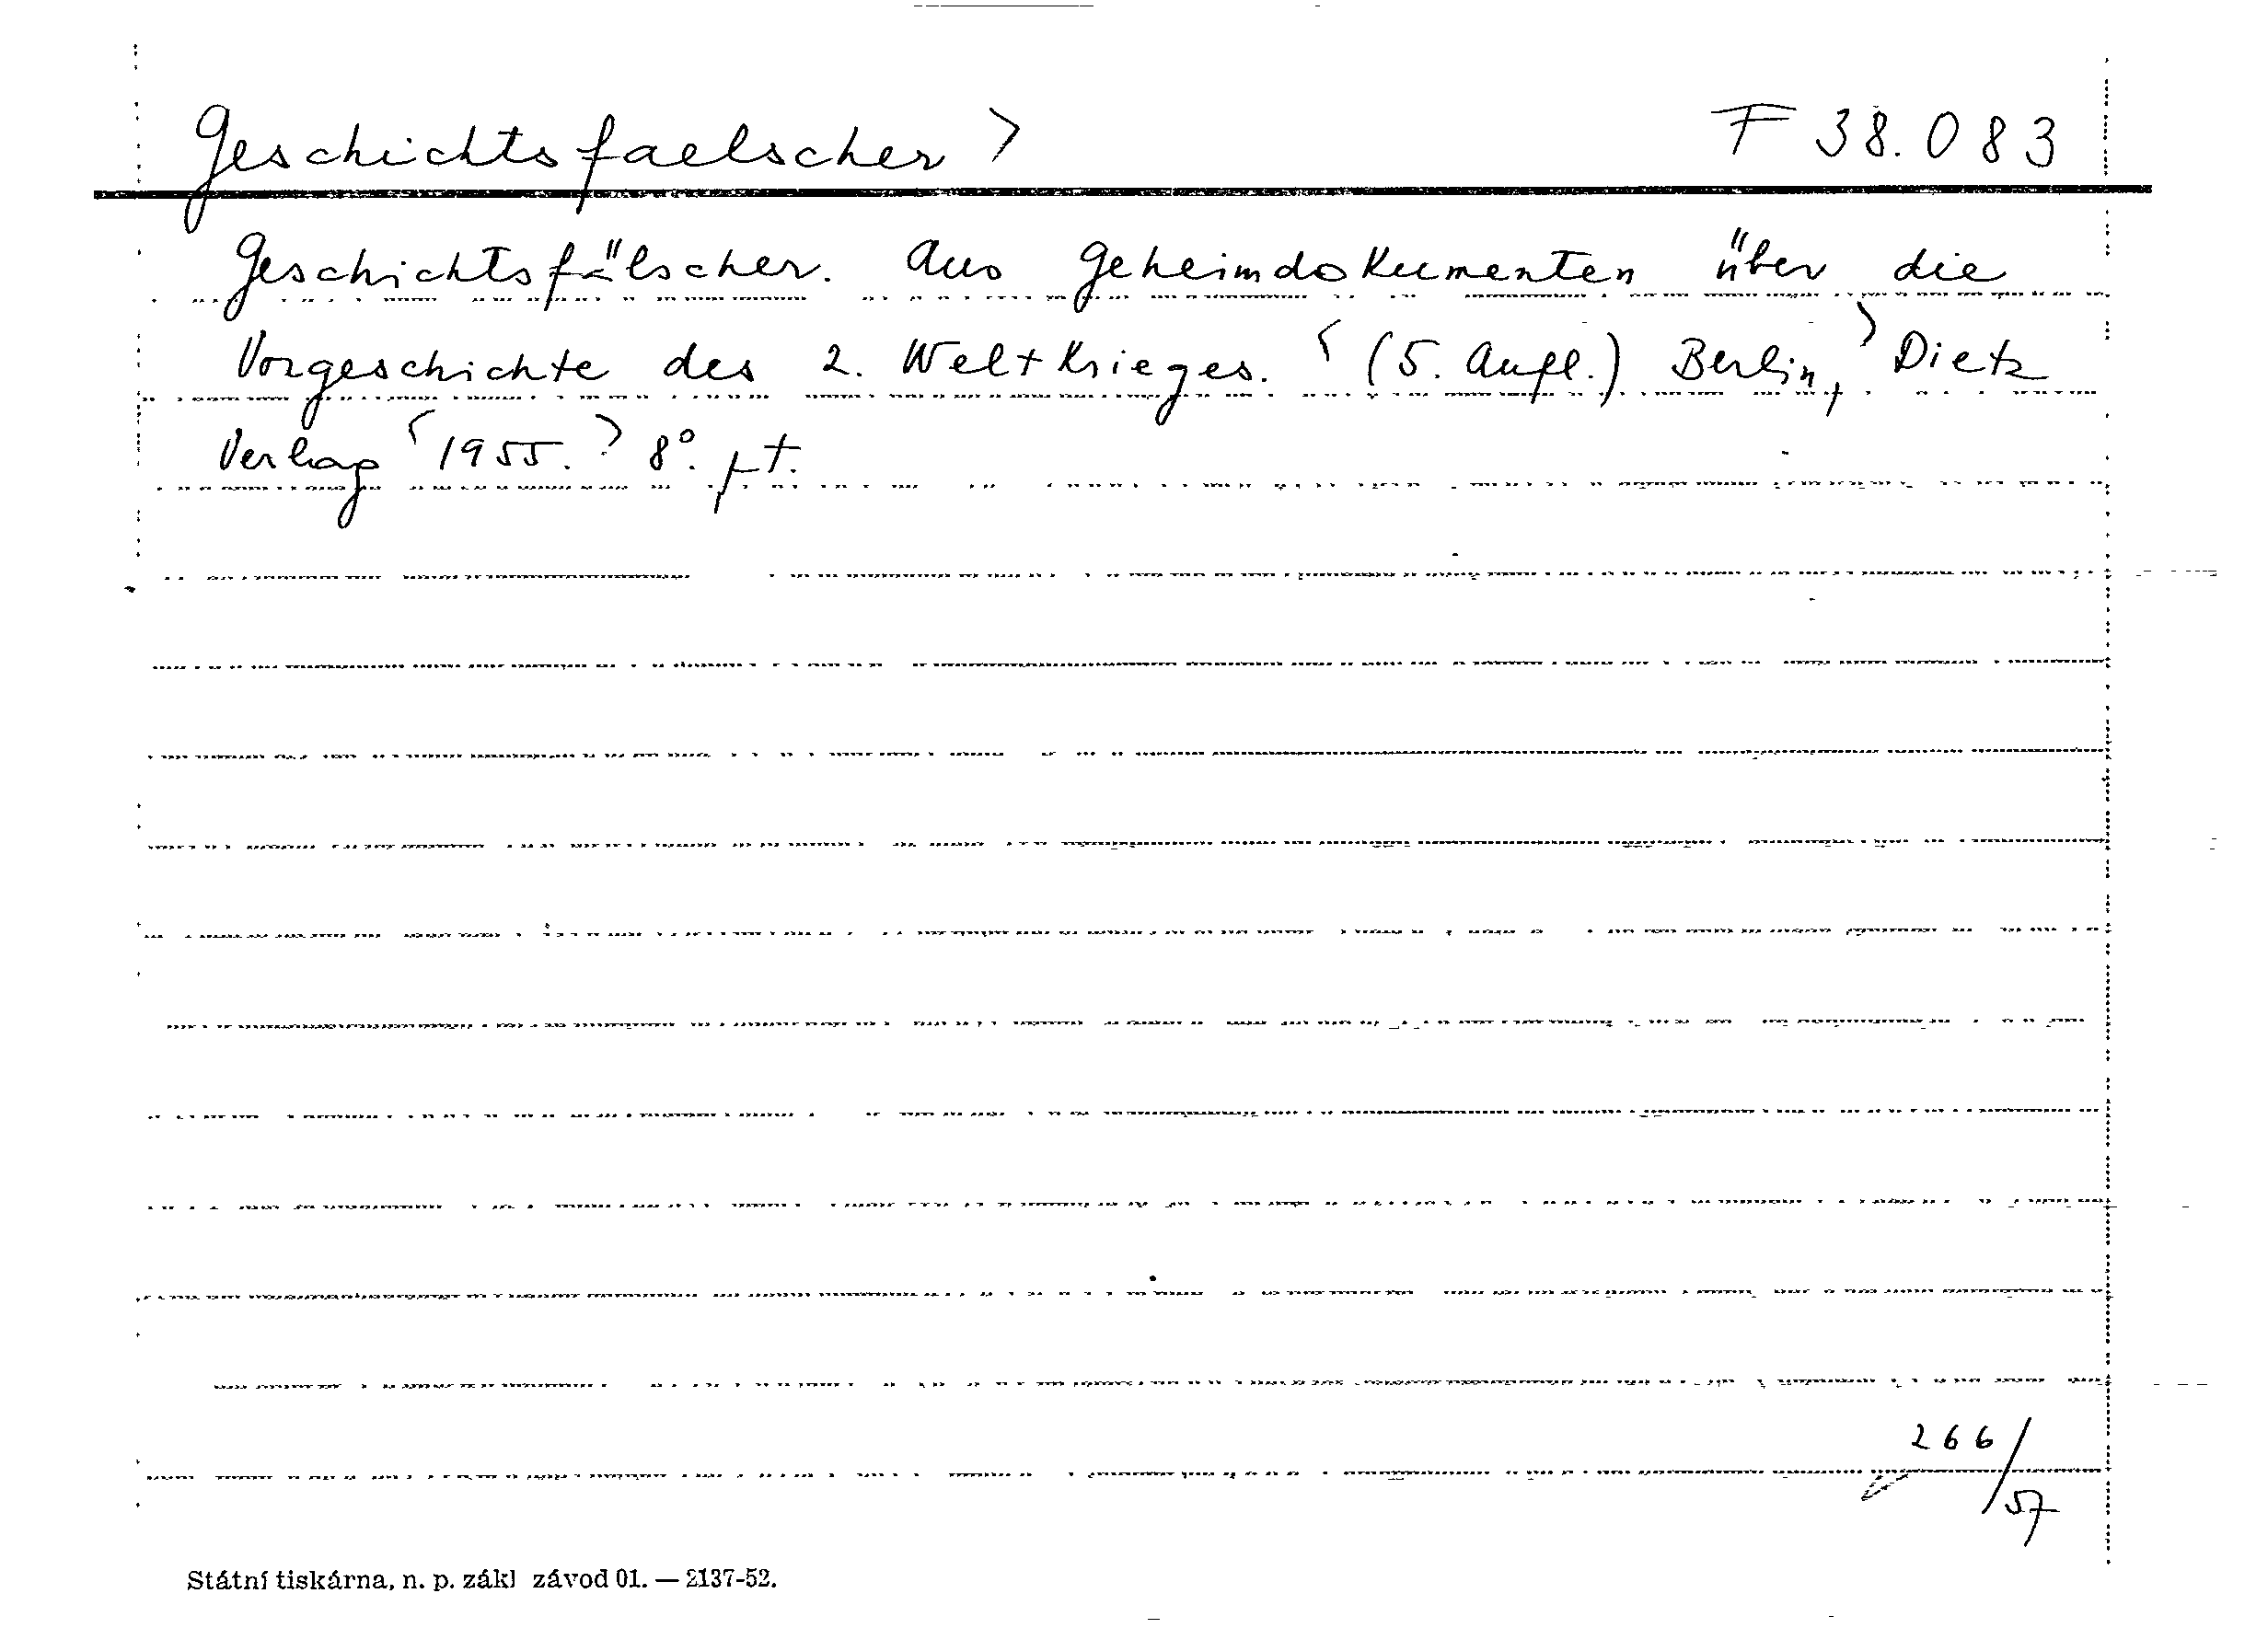 Geschichtsfaelscher > F 38.083
Geschichtsfälscher. Aus Geheimdokumenten über die
Vorgeschichte des 2. Weltkrieges. < (5. Aufl.) Berlin, > Dietz
Verlag < 1955. > 8°.
266/57
Státní tiskárna, n. p. zákl závod 01. — 2137-52.